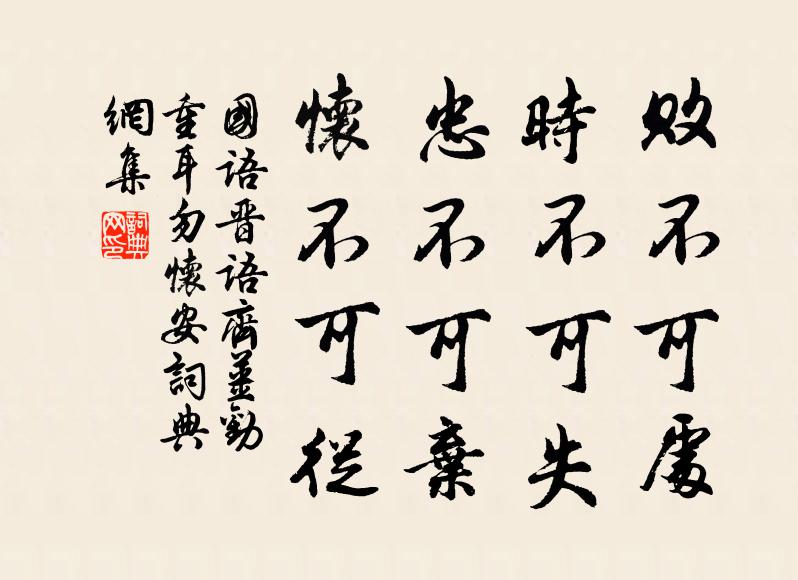 敗不可處
時不可失
忠不可棄
懷不可從
國語晉語齊姜勸
重耳勿懷安詞典
網集
詞典
网印